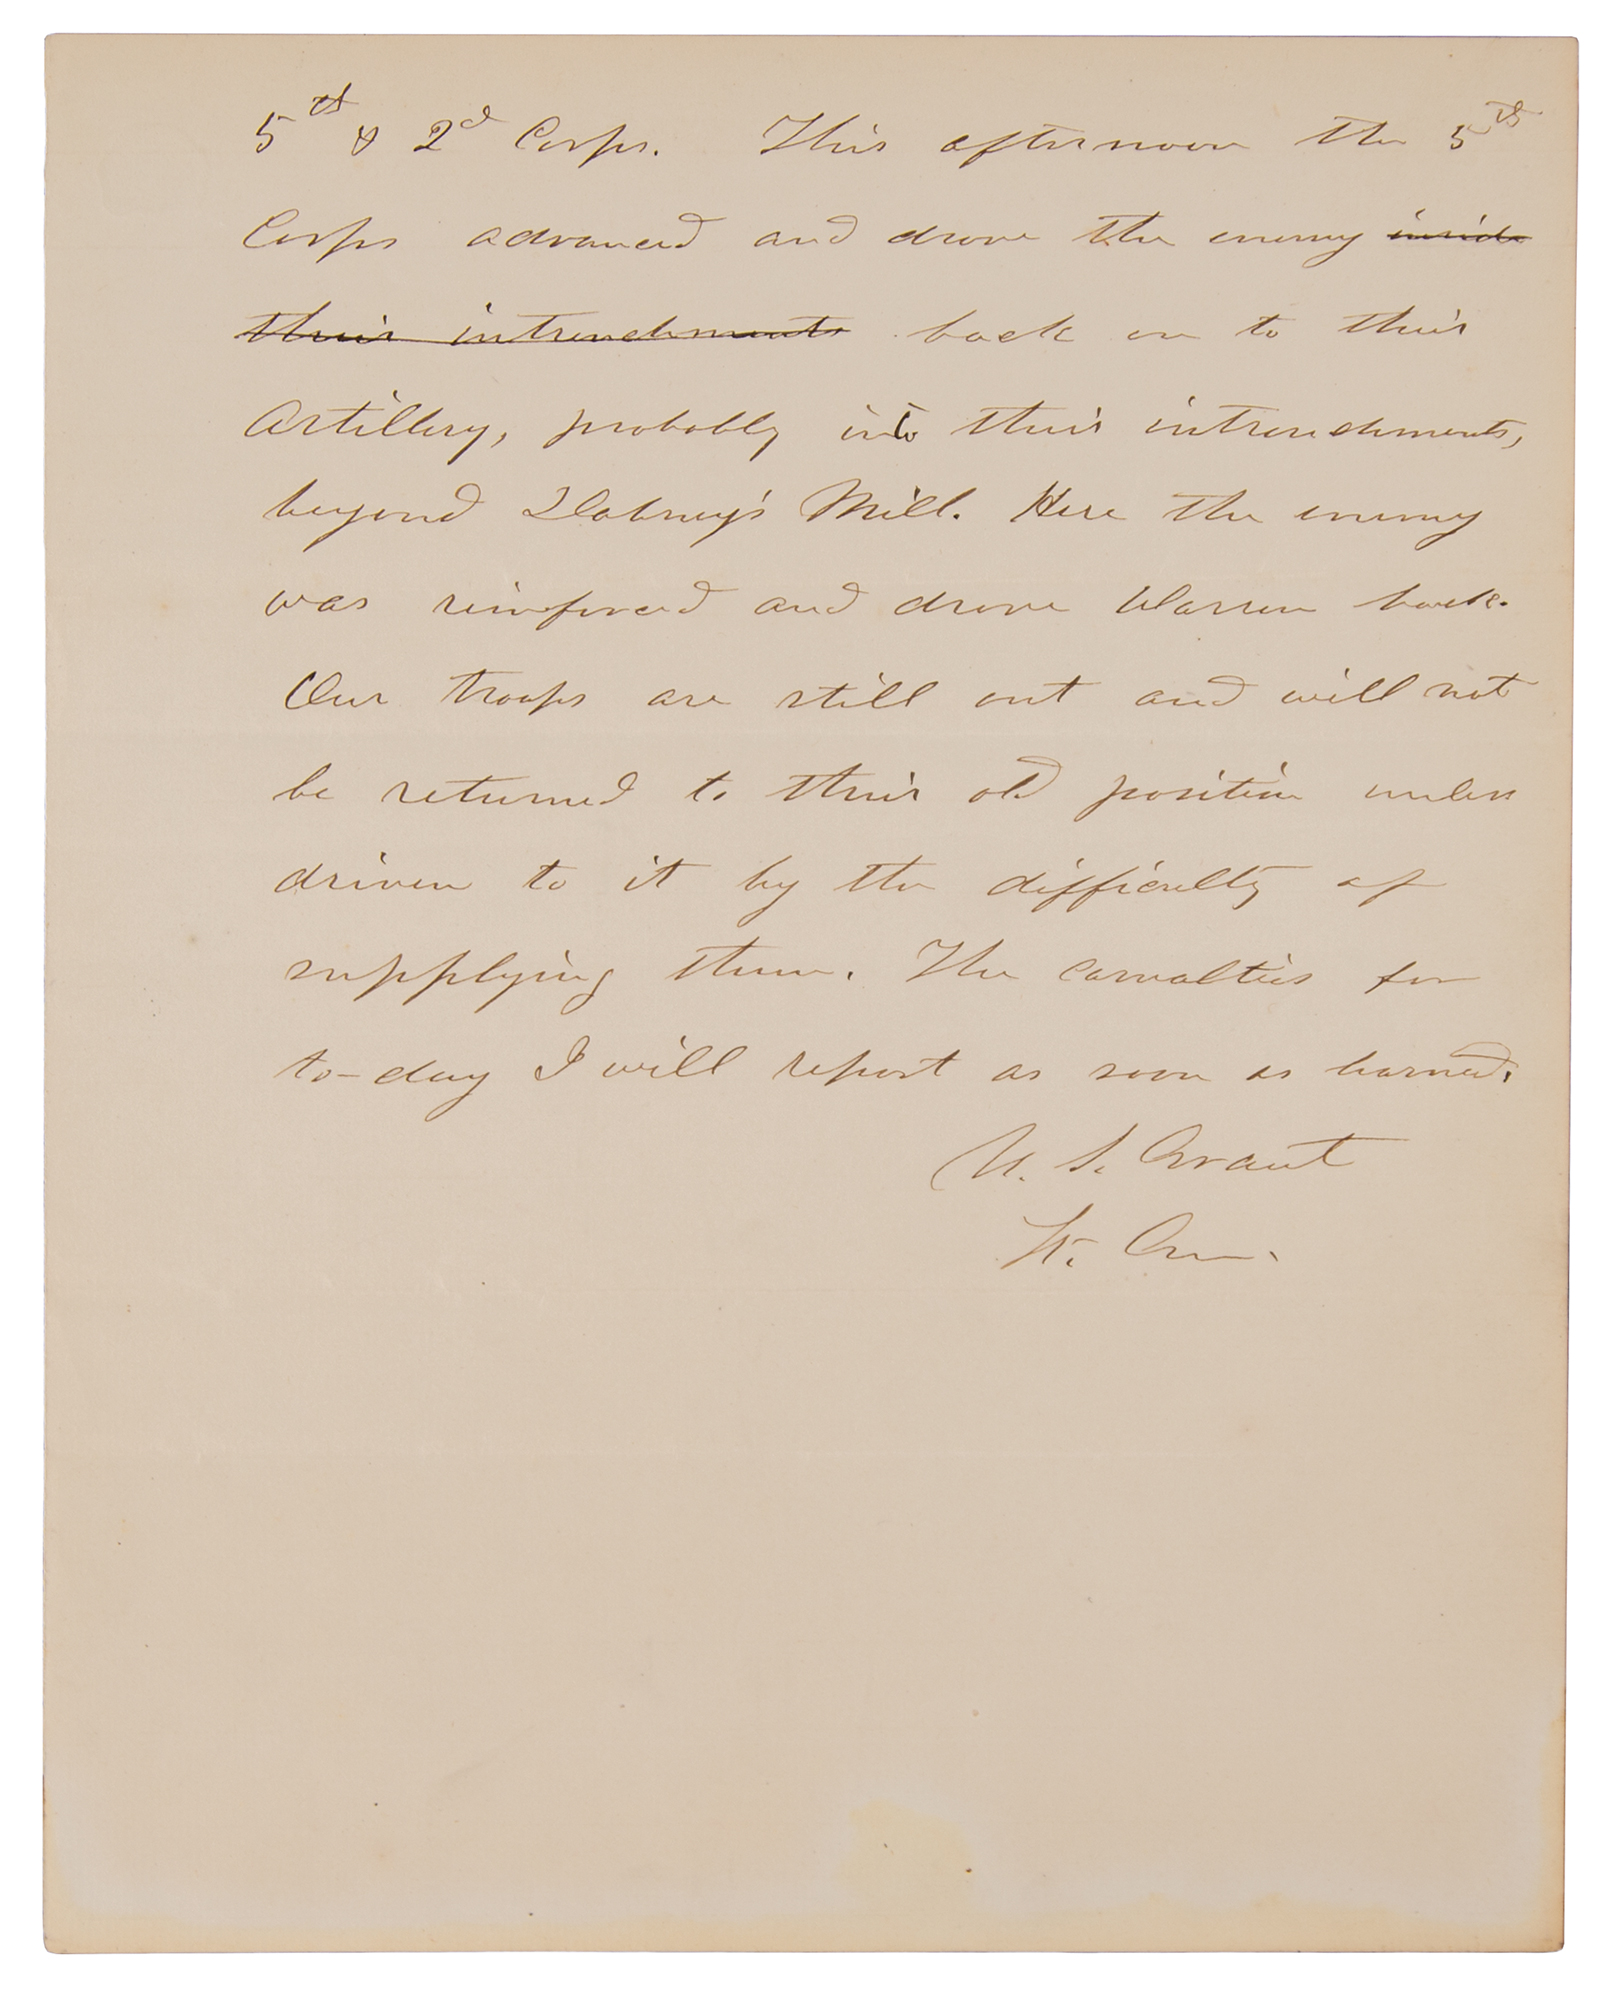 5th & 2d Corps. This afternoon the 5th
Corps advanced and drove the enemy inside
their intrenchments back on to their
Artillery, probably into their intrenchments,
beyond Dabney's Mill. Here the enemy
was reinforced and drove Warren back.
Our troops are still out and will not
be returned to their old position unless
driven to it by the difficulty of
supplying them. The casualties for
to-day I will report as soon as learned.
U. S. Grant
Lt. Gen.